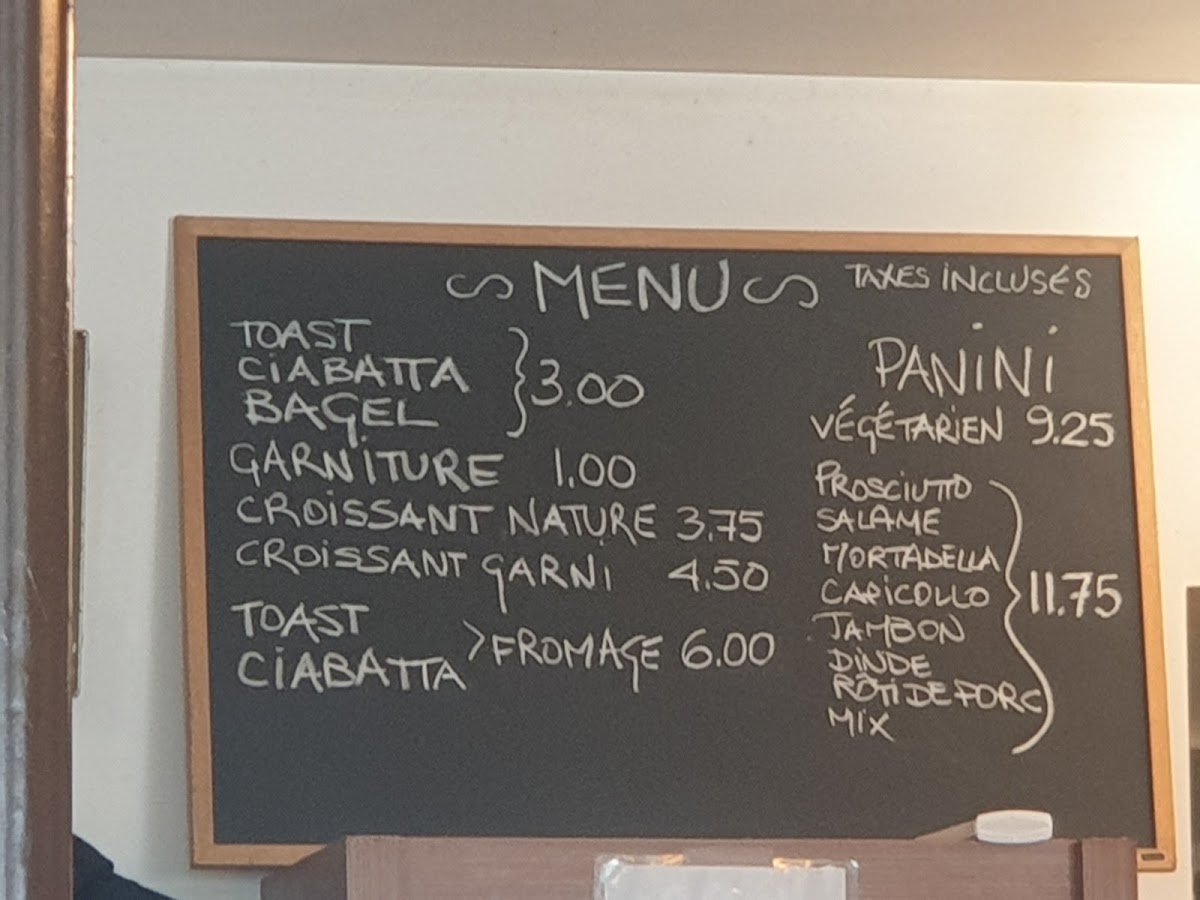 MENU
TAXES INCLUSES
TOAST
CIABATTA
BAGEL
3.00
GARNITURE 1.00
CROISSANT NATURE 3.75
CROISSANT GARNI 4.50
TOAST
CIABATTA
>FROMAGE 6.00
PANINI
VÉGÉTARIEN 9.25
PROSCIUTTO
SALAME
MORTADELLA
CAPICOLLO
JAMBON
DINDE
RÔTI DE PORC
MIX
11.75